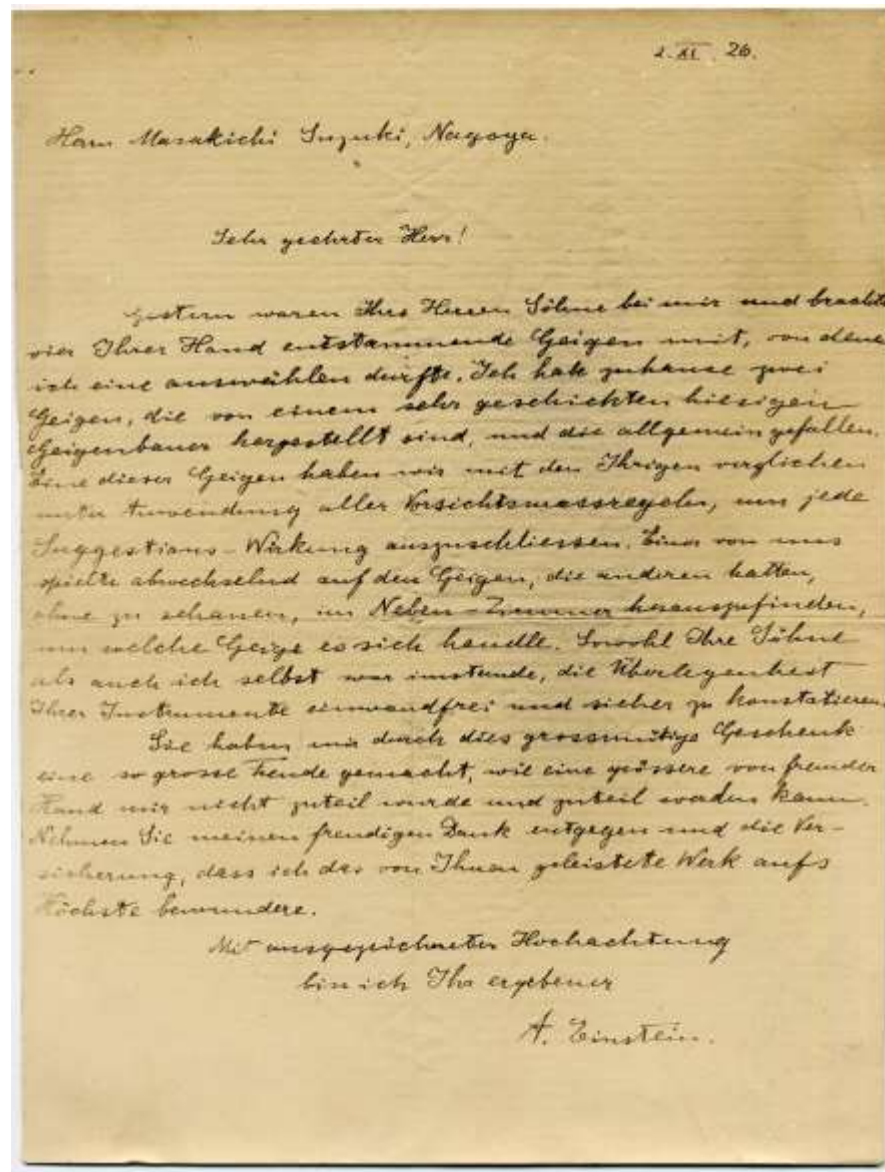 2. XI. 26.
Herrn Masakichi Suzuki, Nagoya.
Sehr geehrter Herr!
Gestern waren Ihre Herren Söhne bei mir und brachte
vier Ihrer Hand entstammende Geigen mit, von dene
ich eine auswählen durfte. Ich hab zuhause zwei
Geigen, die von einem sehr geschickten hiesigen
Geigenbauer hergestellt sind, und die allgemein gefallen.
Eine dieser Geigen haben wir mit den Ihrigen verglichen
unter Anwendung aller Vorsichtsmassregeln, um jede
Suggestions-Wirkung auszuschliessen. Einer von uns
spielte abwechselnd auf den Geigen, die anderen hatten,
ohne zu schauen, im Neben-Zimmer herauszufinden,
um welche Geige es sich handle. Sowohl Ihre Söhne
als auch ich selbst war imstande, die Überlegenheit
Ihrer Instrumente einwandfrei und sicher zu konstatieren.
Sie haben mir durch dies grossmütige Geschenk
eine so grosse Freude gemacht, wie eine grössere von fremder
Hand mir nicht zuteil wurde und zuteil werden kann.
Nehmen Sie meinen freudigen Dank entgegen und die Ver-
sicherung, dass ich das von Ihnen geleistete Werk aufs
Höchste bewundere.
Mit ausgezeichneter Hochachtung
bin ich Ihr ergebener
A. Einstein.